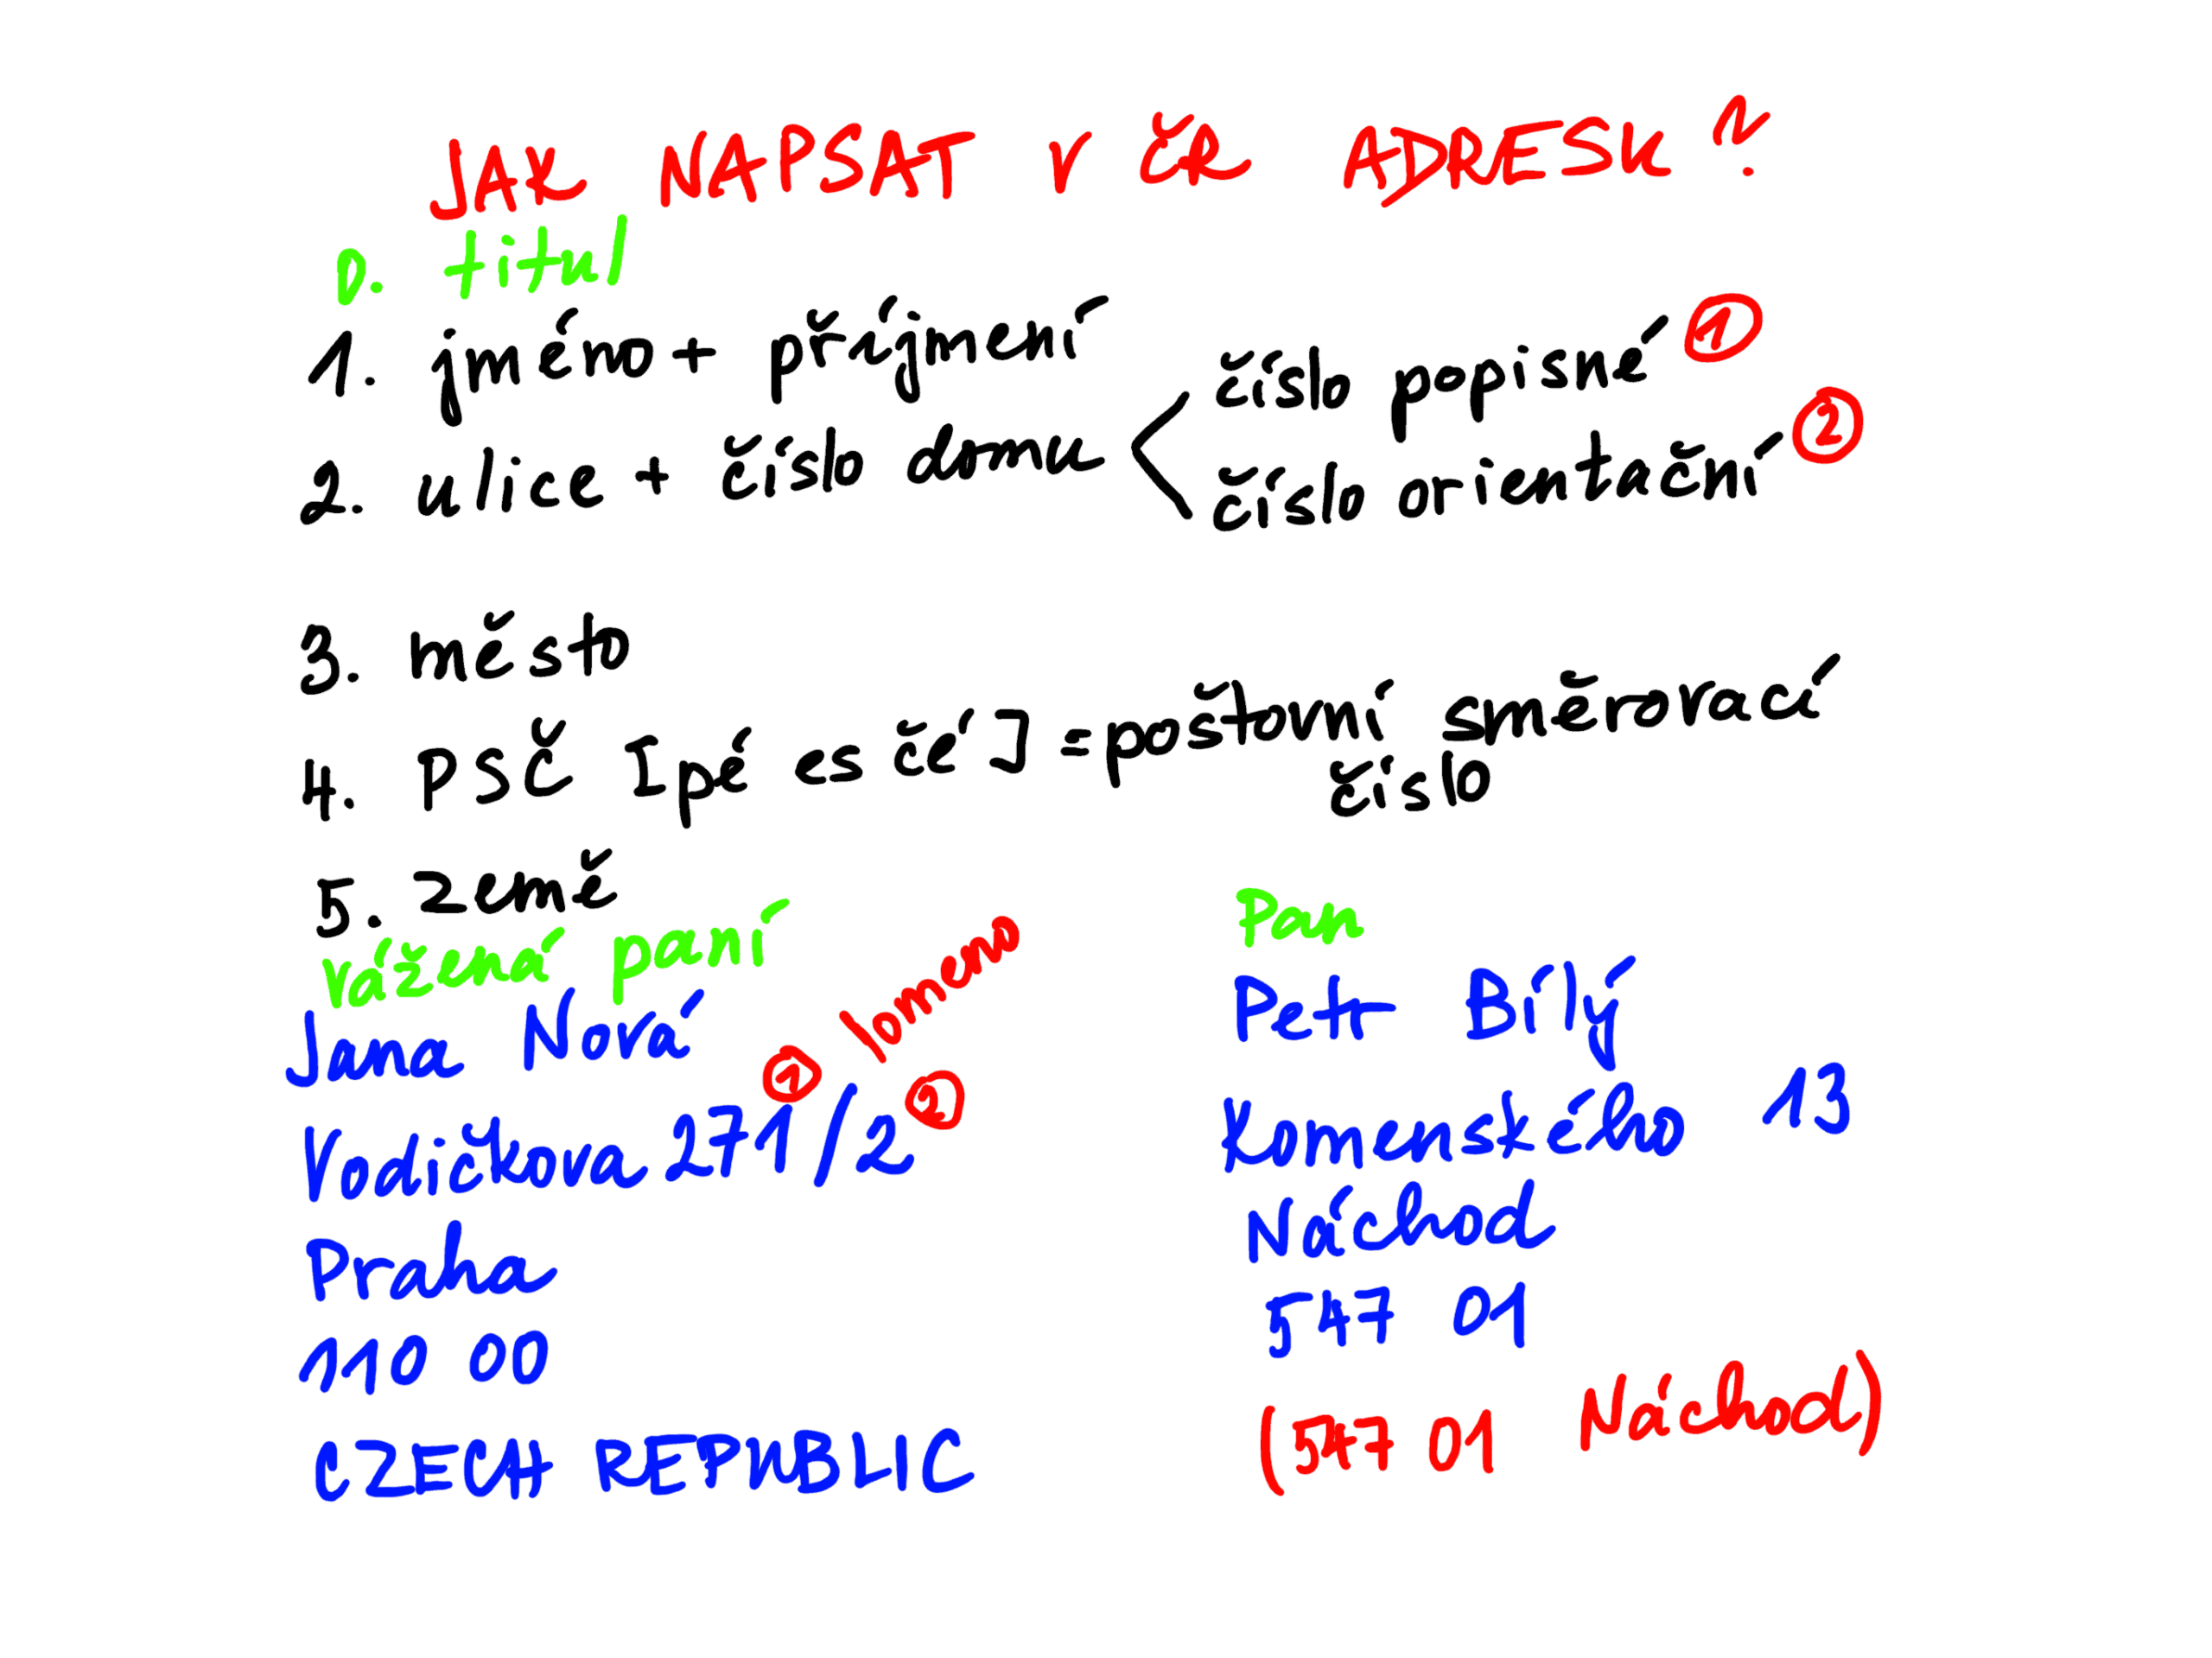 JAK NAPSAT V ČR ADRESU?
0. titul
1. jméno + příjmení
2. ulice + číslo domu < číslo popisné ①
číslo orientační ②
3. město
4. PSČ [pé es čé] = poštovní směrovací
číslo
5. země
Vážená paní
Jana Nová
lomeno
① ②
Vodičkova 271/2
Praha
110 00
CZECH REPUBLIC
Pan
Petr Bílý
Komenského 13
Náchod
547 01
(547 01 Náchod)